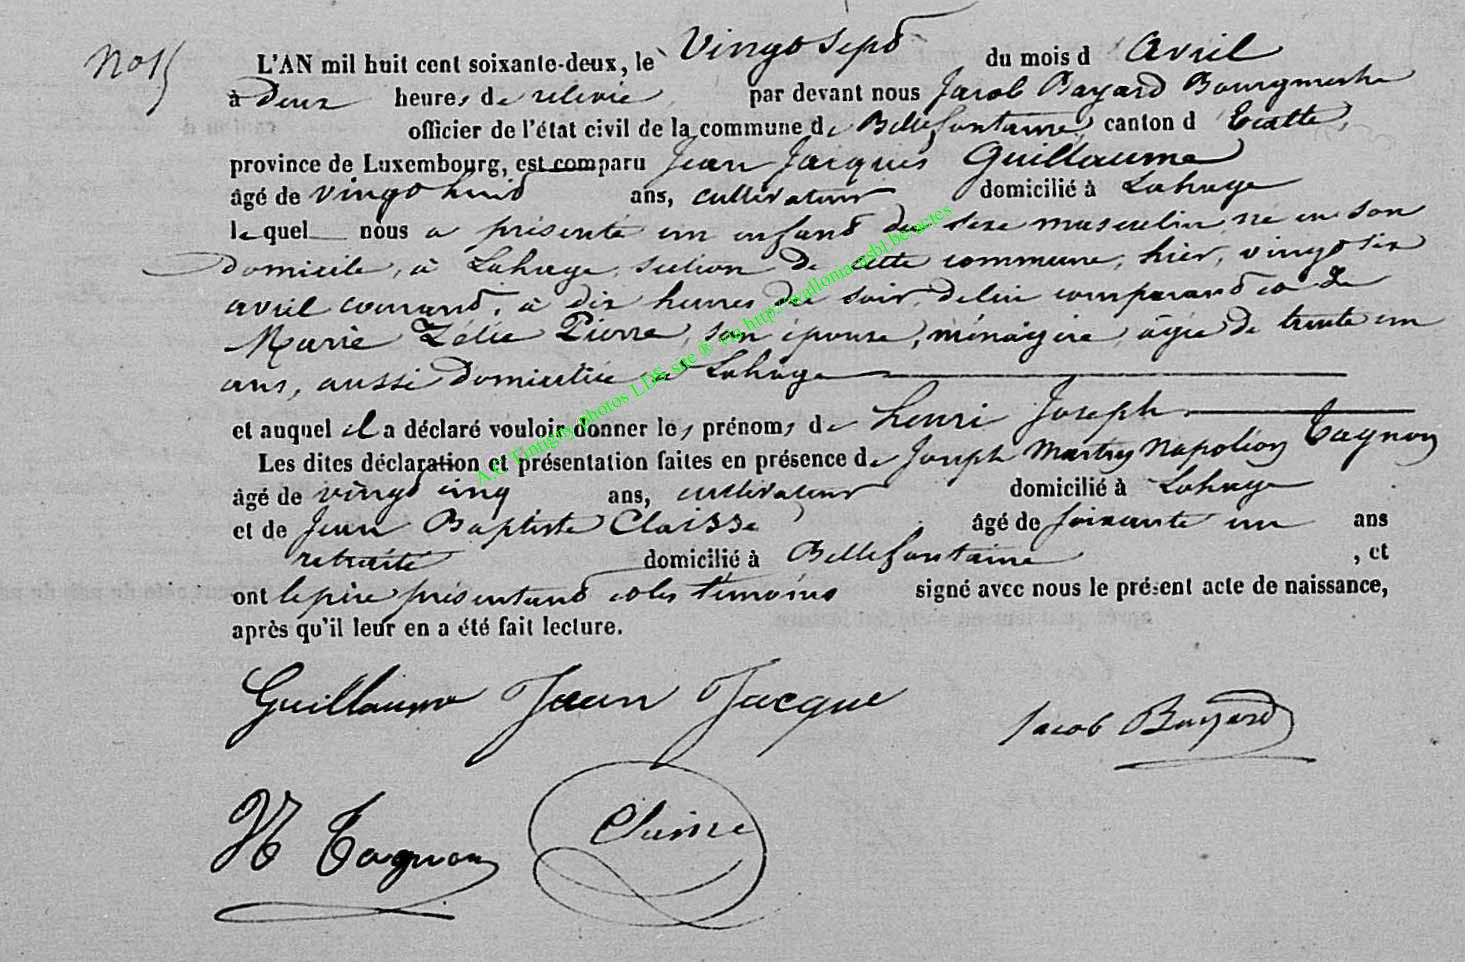 No 15
L'AN mil huit cent soixante-deux, le vingt sept du mois d'avril
à deux heures de relevée, par devant nous Jacob Bayard Bourgmestre
officier de l'état civil de la commune de Bellefontaine, canton d'Etalle,
province de Luxembourg, est comparu Jean Jacques Guillaume
âgé de vingt huit ans, cultivateur domicilié à Lahage
lequel nous a présenté un enfant du sexe masculin, né en son
domicile, à Lahage, section de cette commune, hier, vingt six
avril courant, à dix heures du soir, de lui comparant et de
Marie Zélie Pierre, son épouse, ménagère, âgée de trente un
ans, aussi domiciliée à Lahage
et auquel il a déclaré vouloir donner les prénoms de henri Joseph
Les dites déclaration et présentation faites en présence de Joseph Napoléon Tagnon
âgé de vingt cinq ans, cultivateur domicilié à Lahage
et de Jean Baptiste Claisse âgé de soixante un ans
retraité domicilié à Bellefontaine, et
ont le père présentant et les témoins signé avec nous le présent acte de naissance,
après qu'il leur en a été fait lecture.
Guillaume Jean Jacque
Jacob Bayard
N Tagnon
Claisse
A.C Tintigny photos LDS site ® via http://walloniaasbl.be/actes